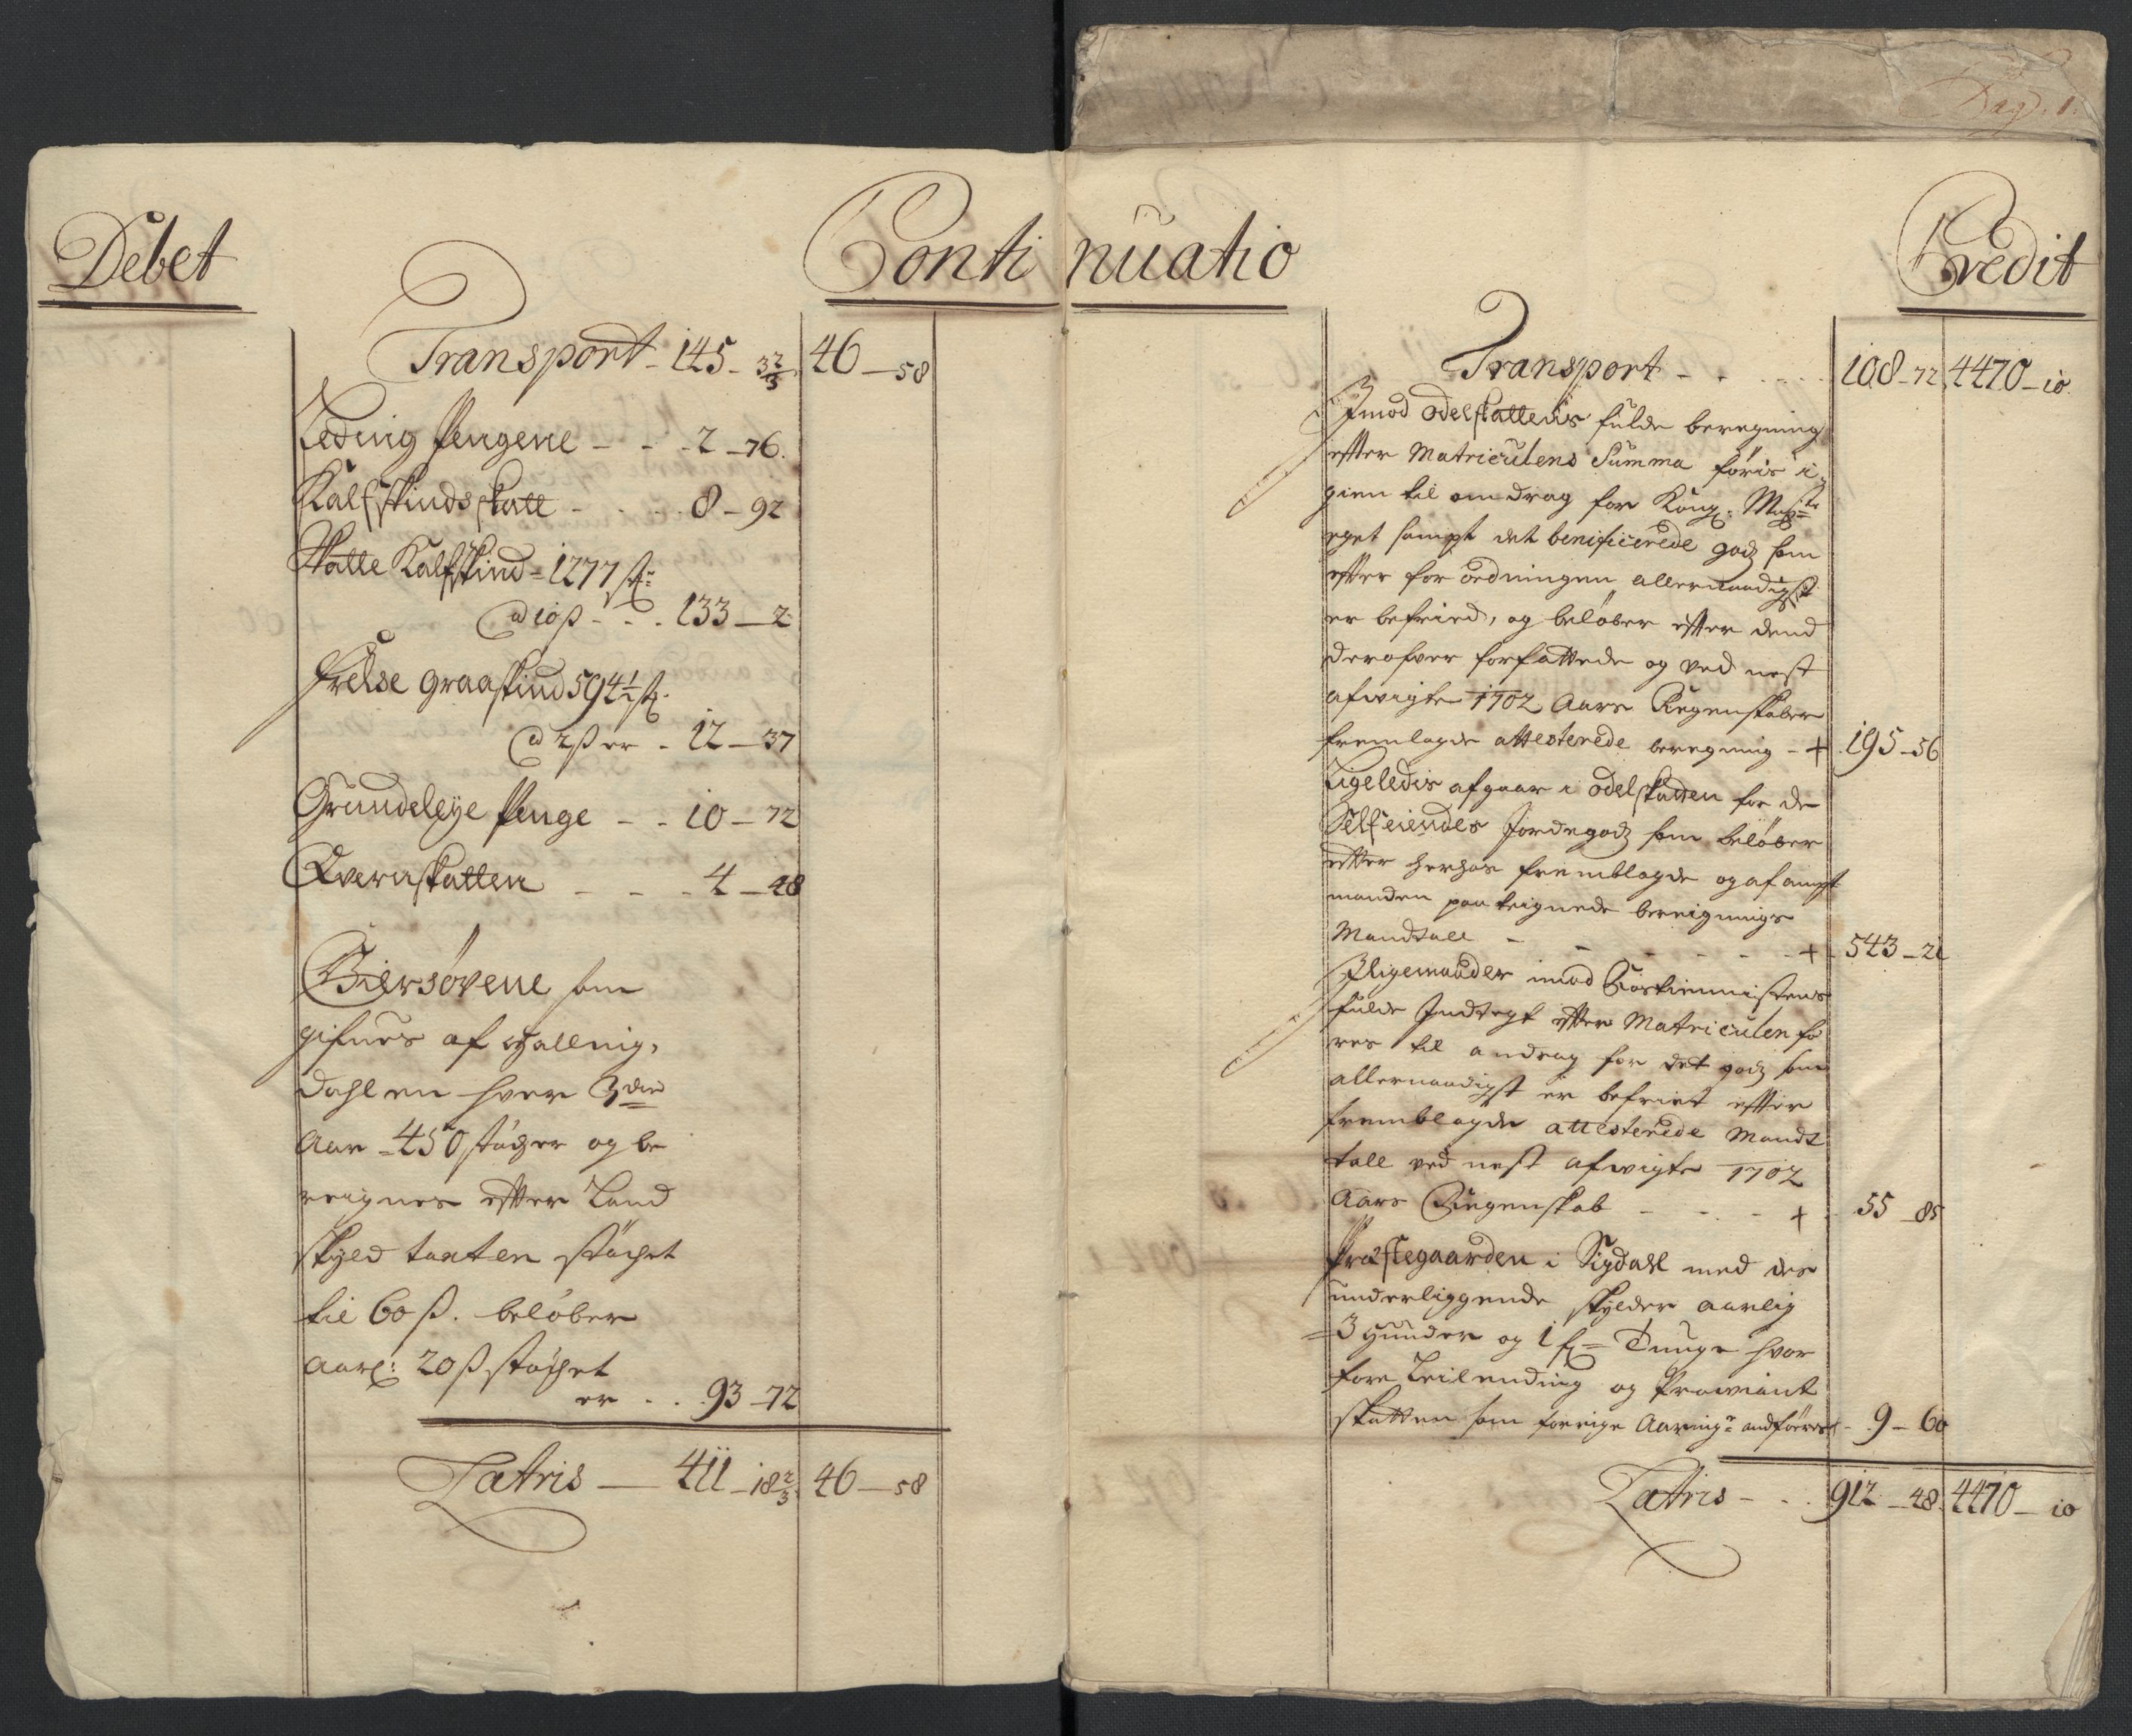 Pag. 1.
Debet
Continuatio
Credit
Transport - 145 - 3 2/3 46 - 58
Leding Pengene - - - 2 - 76.
Kalfskinds skatt - - - 8 - 92
Skatte Kalfskind = 1277 st:
a 10 ß - - . 133 - 2
Frelse graaskind 594 1/2 st:
a 2 ß er - 12 - 37
Grundeleye Penge - - 10 - 72
Qvernskatten - - - 4 - 48
Biersøvene som
gifues af Halling,
dahlen hver 3die
Aar - 450 støcher og be
reignes efter Land
skyld taxten støchet
til 60 ß. beløber
aarl: 20 ß støchet
er . . 93 - 72
Latris — 411 - 18 2/3 46 - 58
Transport - - .... 108 - 72 4470 - 10
Imod Odelskattens fulde beregning
efter Matriculens Summa føris i-
gien til omdrag for Kong: Maj:ts
eget sampt det benificerede godz som
efter forordningen allernaadigst
er befried, og beløber efter dend
derofver forfattede og ved nest
afvigte 1702 Aars Regenskaber
fremlagde attesterede beregning - + 195 - 56
Ligeledis afgaar i Odelskatten for de
Selfeiendes Jordegodz som beløber
efter herhos fremblagde og af ampt
manden paateignede bereignings
Mandtall - - - - - - + 543 - 21
Iligemaader imod Rostienistens
fulde Indtegt efter Matriculen fø
res til andrag for det godz som
allernaadigst er befriet efter
fremblagde attesterede Mandt
tall ved nest afvigte 1702
Aars Regenskab - - - - + 55 - 85
Præstegaarden i Sigdahl med des
underliggende skylder aarlig
3 Hunder og 1 fr: Tunge hvor
fore Leilending og Proviant
skatten som forrige Aaringr andføres - 9 - 60
Latris - - . 912 - 48 4470 - 10